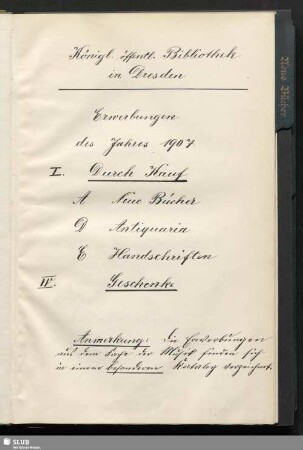 Königl. öffentl. Bibliothek
in Dresden
Erwerbungen
des Jahres 1907
I. Durch Kauf
A Neue Bücher
D Antiquaria
E Handschriften
IV. Geschenke
Anmerkung: Die Erwerbungen
aus dem Fache der Musik finden sich
in einem besonderen Katalog verzeichnet.
Neue Bücher
SLUB
Wir führen Wissen.